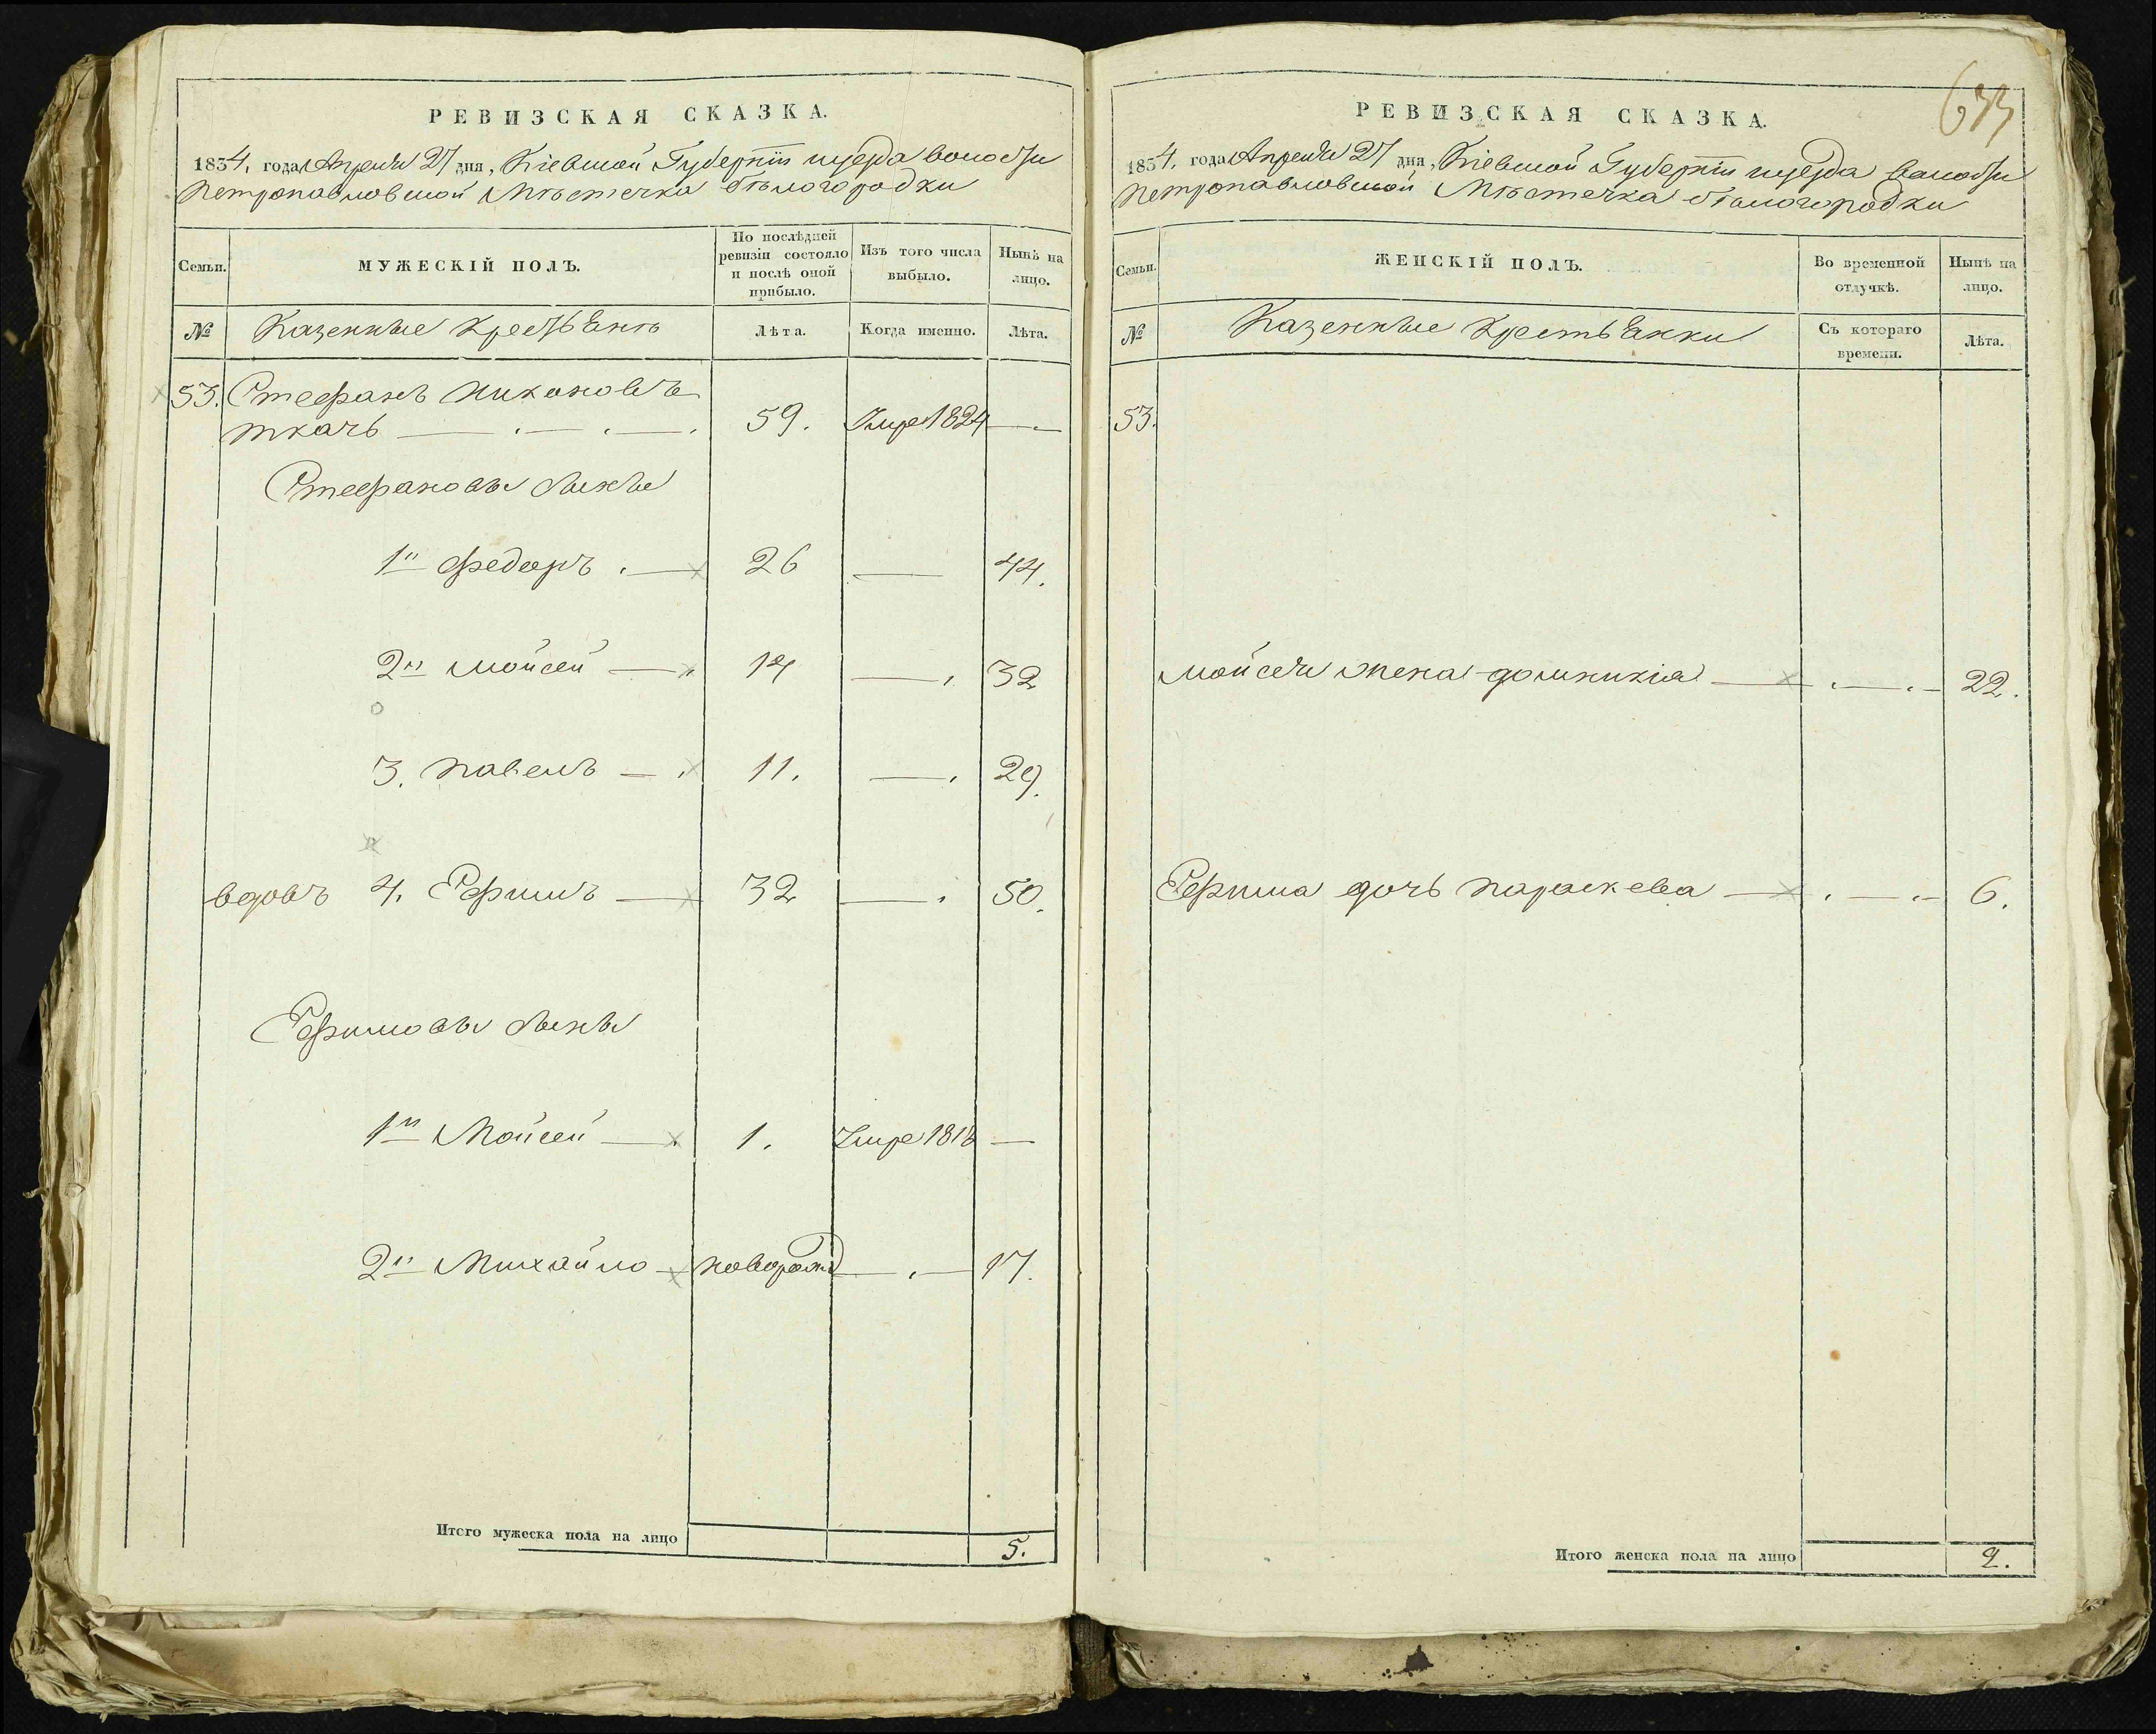 РЕВИЗСКАЯ СКАЗКА.
1834. года Апреля 27 дня, Кіевской Губерніи иуезда волости
Петропавловской Мѣстечка бѣлогородки
Семьи.
МУЖЕСКІЙ ПОЛЪ.
По послѣдней
ревизіи состояло
и послѣ оной
прибыло.
Изъ того числа
выбыло.
Нынѣ на
лицо.
№
Казенные Крестьянѣ
Лѣта.
Когда именно.
Лѣта.
53. Стефанъ никоновъ
ткачь 59. Умре 1824
Стефановы сыны
1й федоръ 26 44.
2й мойсей 14 32
3. павелъ 11. 29.
вдовъ 4. Ефимъ 32 50.
Ефимовы сыны
1й Мойсей 1. Умре 1818
2й Михайло новорожд 17.
Итого мужеска пола на лицо 5.
633
РЕВИЗСКАЯ СКАЗКА.
1834. года Апреля 27 дня, Кіевской Губерніи иуезда волости
Петропавловской Мѣстечка бѣлогородки
Семьи.
ЖЕНСКІЙ ПОЛЪ.
Во временной
отлучкѣ.
Нынѣ на
лицо.
№
Казенные Крестьянки
Съ котораго
времени.
Лѣта.
53.
мойсея жена домникія 22.
Ефима дочь параскева 6.
Итого женска пола на лицо 2.